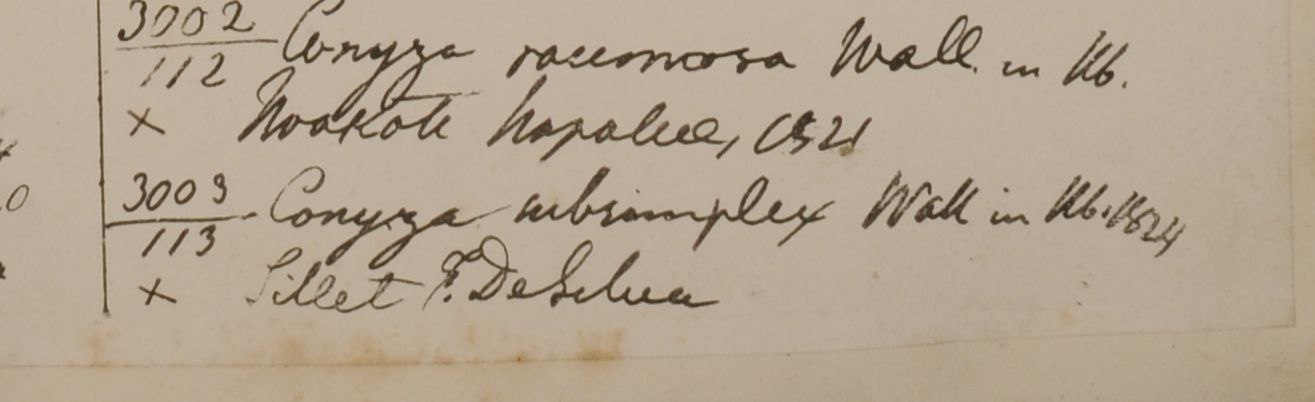 3002 Conyza racemosa Wall. in Hb.
112
× Noakote Napaliae, 1821
3003 Conyza subsimplex Wall in Hb. 1824
113
× Sillet F. De Silva
0